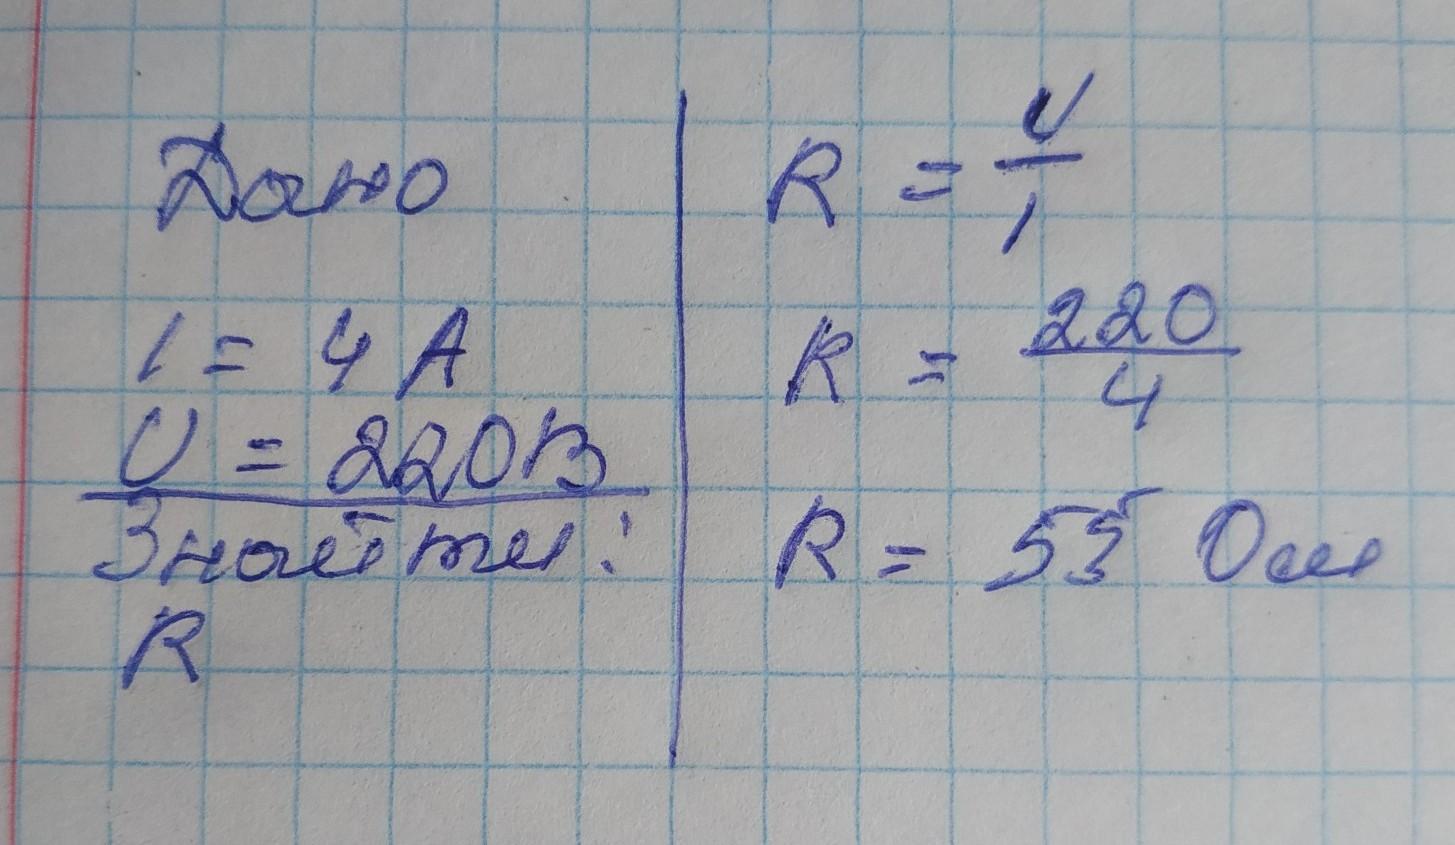 Дано
I = 4 А
U = 220В
Знайти:
R
R = U/I
R = 220/4
R = 55 Ом